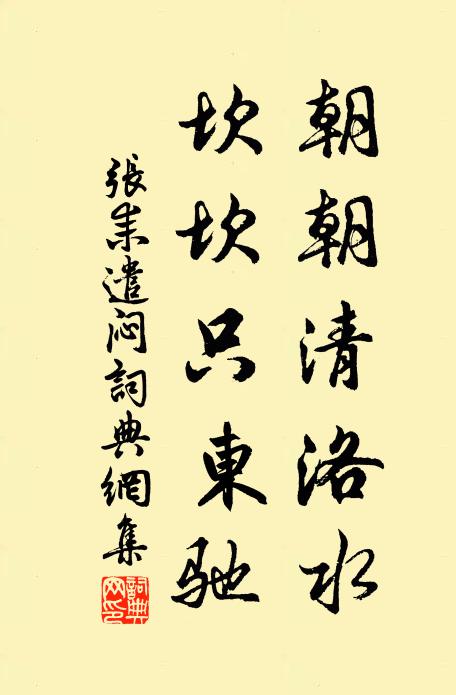 朝朝清洛水
坎坎只東馳
張耒遣悶詞典網集
詞典網印